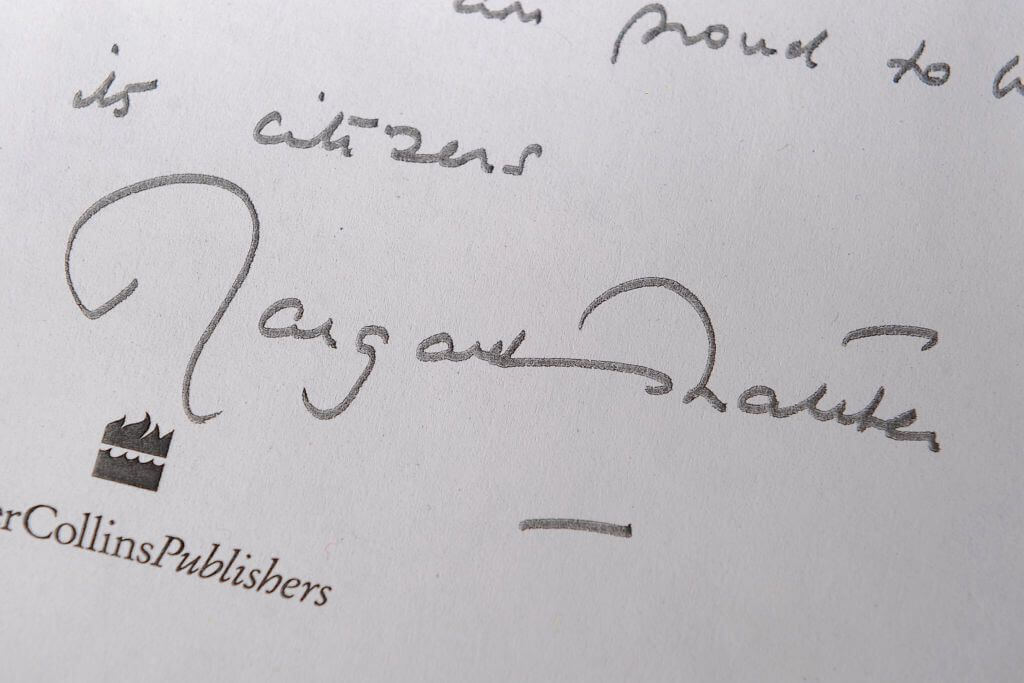 proud to
its citizens
Margaret Thatcher
erCollinsPublishers